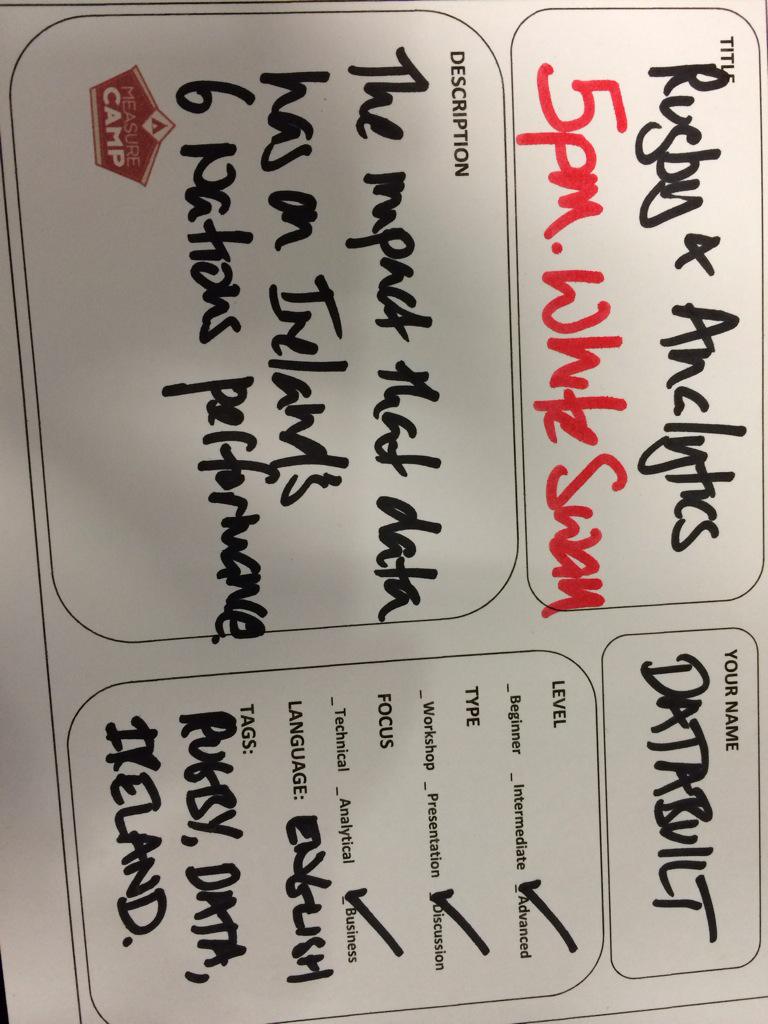 TITLE
Rugby & Analytics
5pm. White Swan
YOUR NAME
DATABUILT
DESCRIPTION
The impact that data
has on Ireland's
6 Nations performance.
MEASURE
CAMP
LEVEL
_ Beginner _ Intermediate _Advanced
TYPE
_ Workshop _ Presentation _Discussion
FOCUS
_ Technical _ Analytical _Business
LANGUAGE: ENGLISH
TAGS:
RUGBY, DATA,
IRELAND.